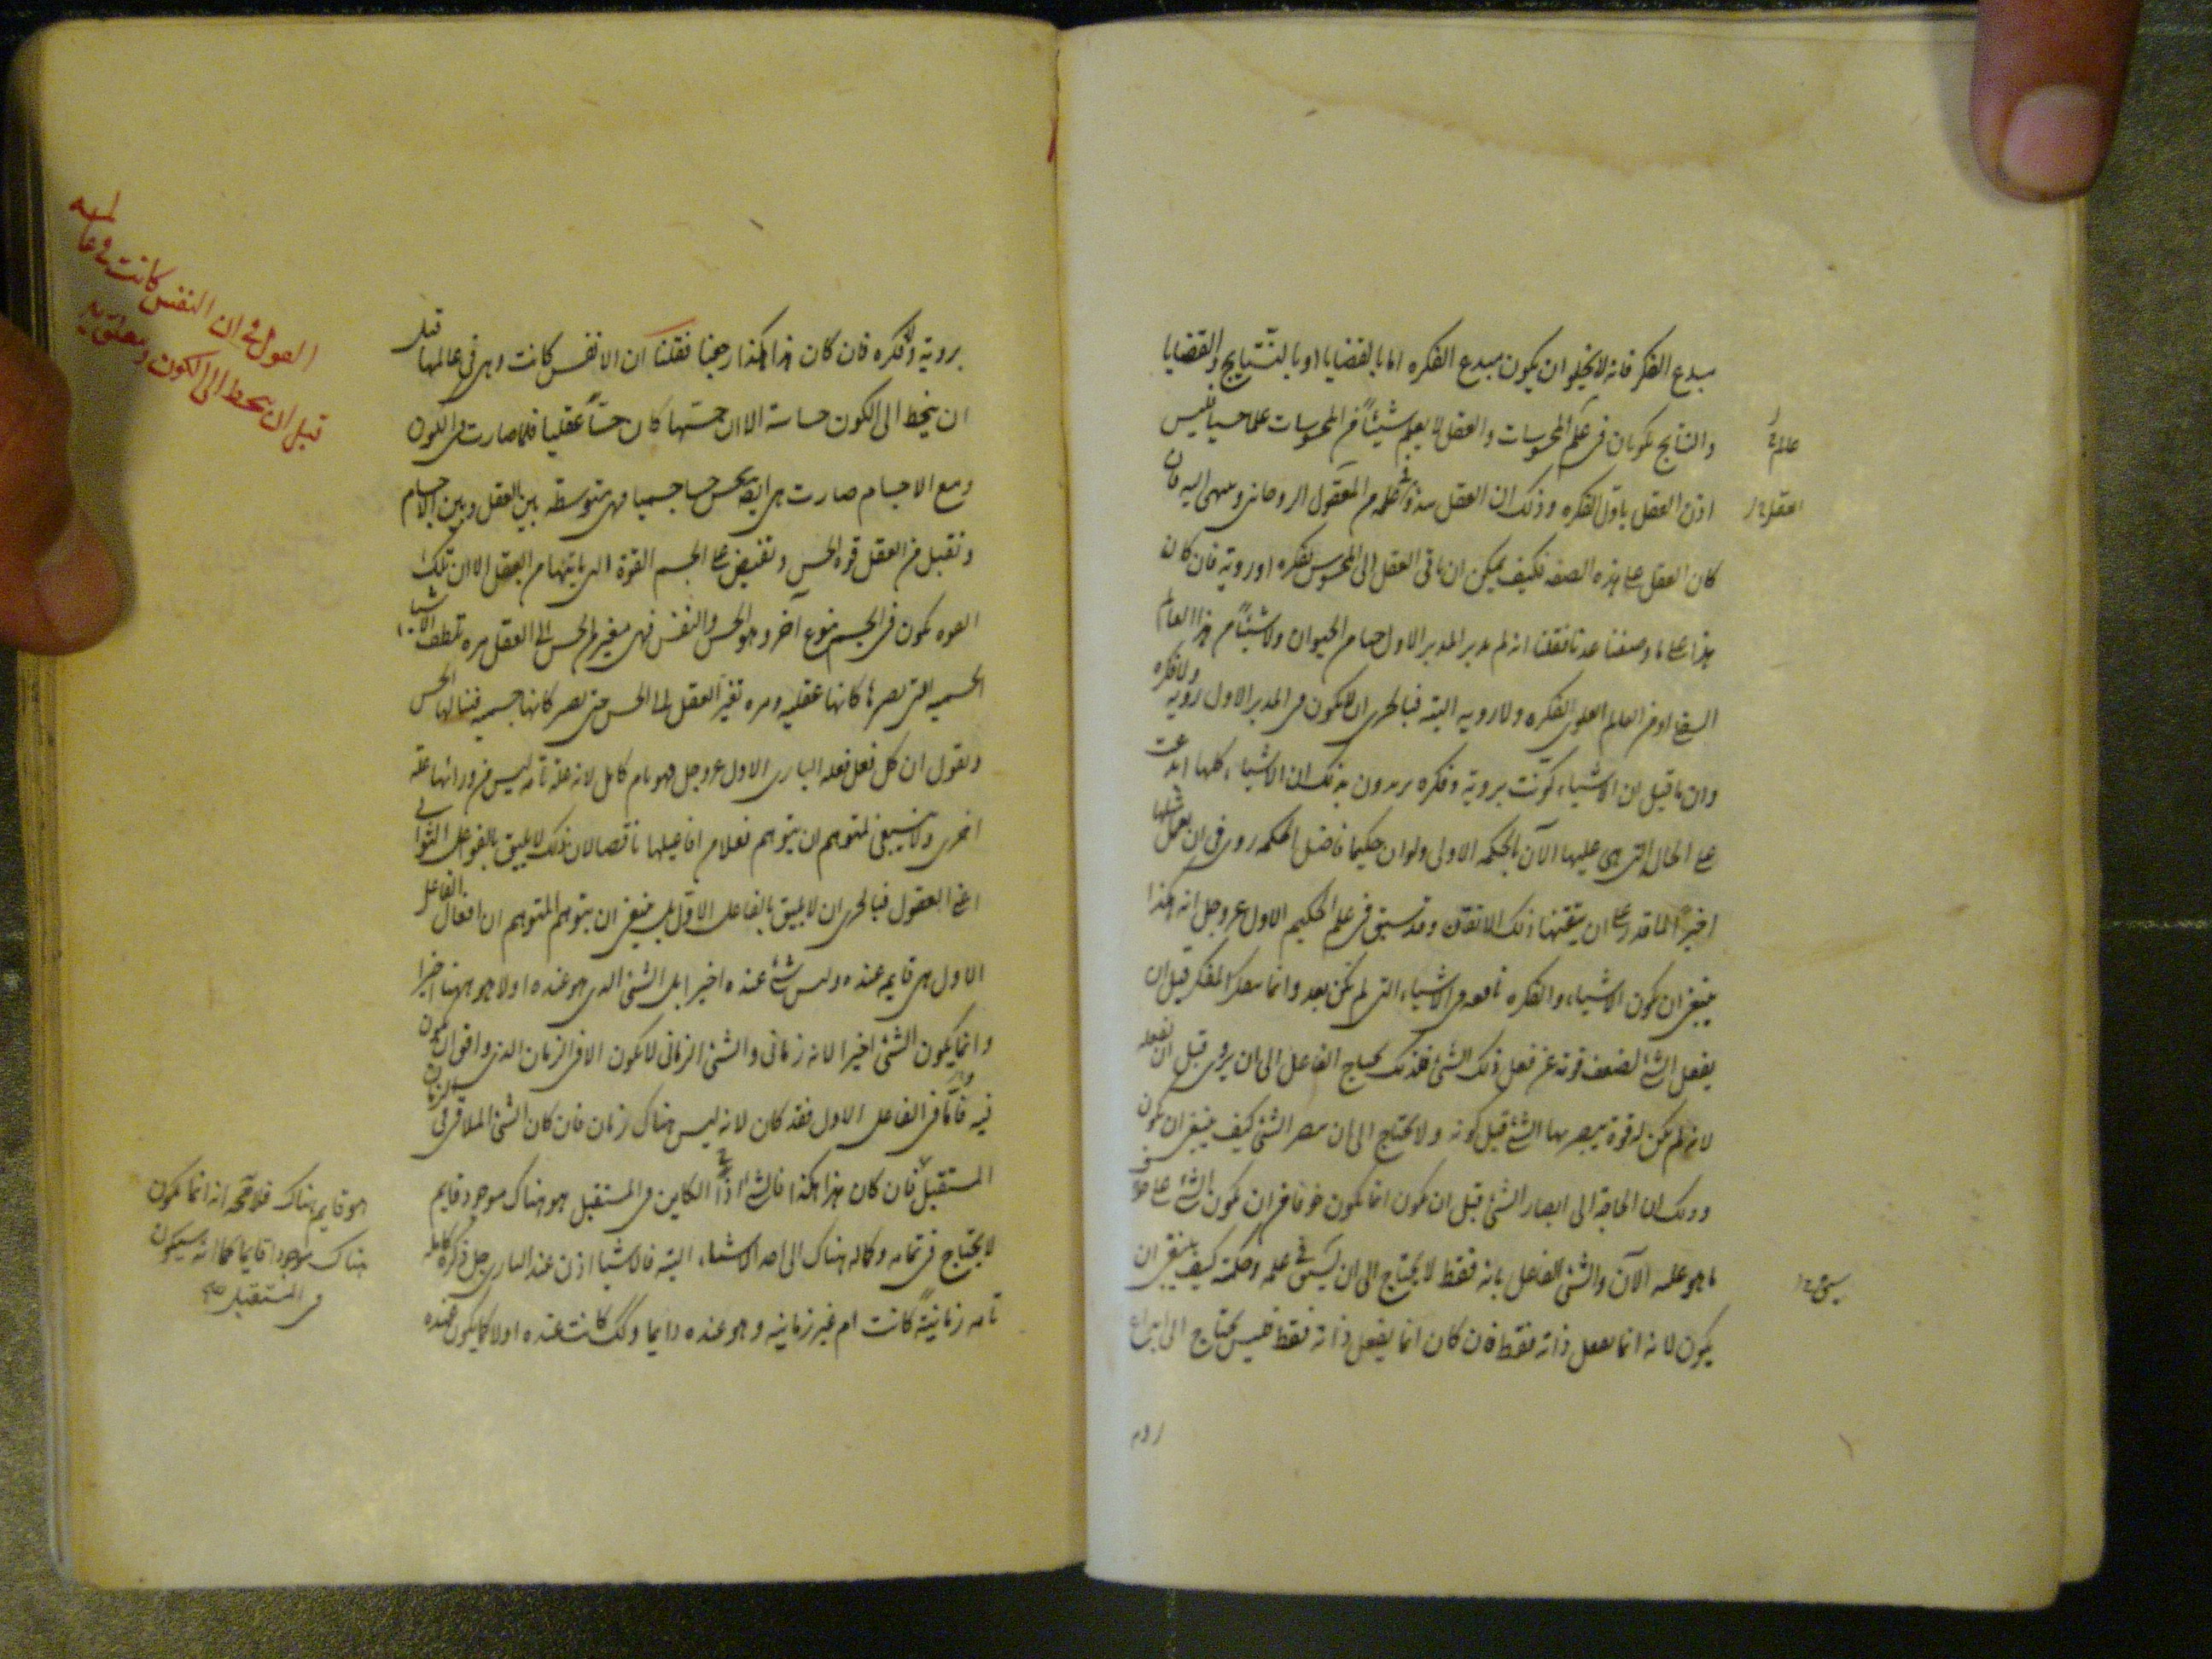 مبدع الفكر فانه لا يخلو ان يكون مبدع الفكره اما بالقضايا او بالنتايج والقضايا
والنتايج يكونان فى علم المحسوسات والعقل لا يعلم شيئاً من المحسوسات علما حسيا فليس
اذن العقل باول الفكره وذلك ان العقل علمه من المعقول الروحانى وينتهى اليه فان
كان العقل على هذه الصفه فكيف يمكن ان ياتى العقل الى المحسوس بفكره او رويه فان كان
هذا على ما وصفنا عدنا فقلنا انه لم يدبر المدبر الاول حيا من الحيوان ولا شيئاً من هذا العالم
السفلى او من العالم العلوى بفكره ولا رويه البته فبالحرى ان لا يكون فى المدبر الاول رويه ولا فكره
وان ما قيل ان الاشياء كونت بروية وفكره يريدون بذلك ان الاشياء كلها ابدعت
على الحال التى هى عليها الآن بالحكمه الاولى ولو ان حكيما فاضل الحكمه روى فى ان يعمل مثلها
اخيراً لما قدر على ان يتقنها ذلك الاتقان وقد سبق فى علم الحكيم الاول عز وجل انه هكذا
ينبغى ان يكون الاشياء والفكره نافعه فى الاشياء التى لم تكن بعد وانما يفكر المفكر قبل ان
يفعل الشئ لضعف قوته عن فعل ذلك الشئ فلذلك يحتاج الفاعل الى ان يروى قبل ان يفعله
لانه لم يكن له قوة يبصر بها الشئ قبل كونه ولا يحتاج الى ان يبصر الشئ كيف ينبغى ان يكون
وذلك ان الحاجة الى ابصار الشئ قبل ان يكون انما يكون خوفا من ان يكون الشئ على خلاف
ما هو عليه الآن والشئ الفاعل بانه فقط لا يحتاج الى ان يسبق فى علمه وحكمته كيف ينبغى ان
يكون لانه انما يفعل ذاته فقط فان كان انما يفعل ذاته فقط فليس يحتاج الى ابداع
العقل
يسبق
بروية وفكره فان كان هذا هكذا رجعنا فقلنا ان الانفس كانت وهى فى عالمها قبل
ان ينحط الى الكون حساسة الا ان حسّها كان حسّاً عقليا فلما صارت فى الكون
ومع الاجسام صارت هى ايضا يحس حسا جسميا فهى متوسطه بين العقل وبين الاجسام
وتقبل من العقل قوه الحس وتفيض على الجسم القوة التى ياتيها من العقل الا ان تلك
القوه يكون فى الجسم بنوع آخر وهو الحس والنفس فهى مره تلطف الاشياء
الجسميه حتى تصيرها كانها عقليه ومره العقل الى الحس حتى يصير كانها جسميه فينالها الحس
ونقول ان كل فعل فعله البارى الاول عز وجل فهو تام كامل لانه علة تامه ليس من ورائها علة
اخرى ولا ينبغى لمتوهم ان يتوهم فعلا من افاعيلها ناقصا لان ذلك لا يليق بالفواعل الثوانى
اعنى العقول فبالحرى ان لا يليق بالفاعل الاول بل ينبغى ان يتوهم المتوهم ان افعال الفاعل
الاول هى قايمه عنده وليس شئ عنده اخيرا بل الشئ الذى هو عنده اولا هو ههنا اخيرا
وانما يكون الشئ اخيرا لانه زمانى والشئ الزمانى لا يكون الا فى الزمان الذى وافق ان يكون
فيه فاما فى الفاعل الاول فقد كان لانه ليس هناك زمان فان كان الشئ الملاقى فى الزمان
المستقبل فان كان هذا هكذا فالشئ اذاً الكاين فى المستقبل هو هناك موجود قايم
لا يحتاج فى تمامه وكماله هناك الى احد الاشياء البته فالاشيا اذن عند البارى جل ذكره كامله
تامه زمانيةً كانت ام غير زمانيه وهو عنده دايما وكذلك كانت عنده اولا كما يكون عنده
القول فى ان النفس كانت فى عالمها
قبل ان ينحط الى الكون
هو قايم هناك فلا محه انه انما يكون
هناك موجودا قايما كما انه سيكون
فى المستقبل صح